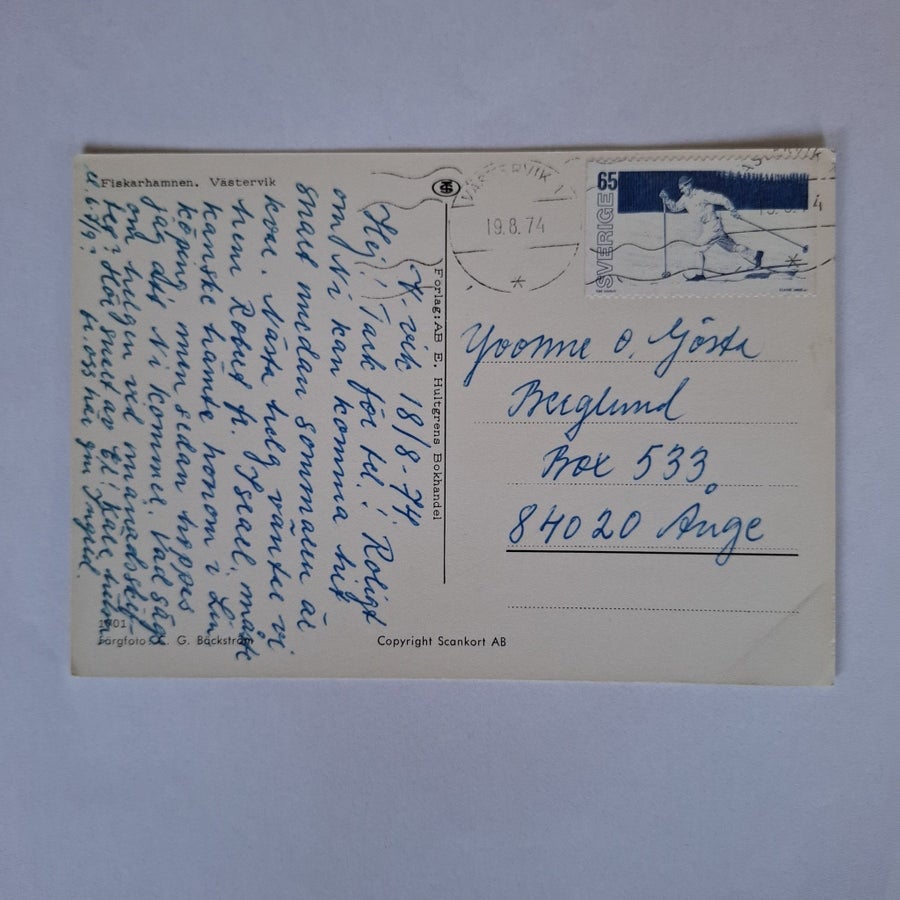 Fiskarhamnen. Västervik
V-vik 18/8-74
Hej! Tack för tel.! Roligt
om Ni kan komma hit
snart medan sommaren är
kvar. Nästa helg väntar vi
hem Robert fr. Israel, måste
kanske hämta honom i Lin
köping men sedan hoppas
jag att Ni kommer. Vad säg
om helgen vid månadsskif-
tet? Hör snart av Er! Kära hälsn.
fr. oss här gm Ingrid.
Förlag: AB E. Hultgrens Bokhandel
1701
Färgfoto: C. G. Bäckström
Copyright Scankort AB
VÄSTERVIK 1
19.8.74
65
SVERIGE
Yvonne o. Gösta
Berglund
Box 533
84020 Ånge